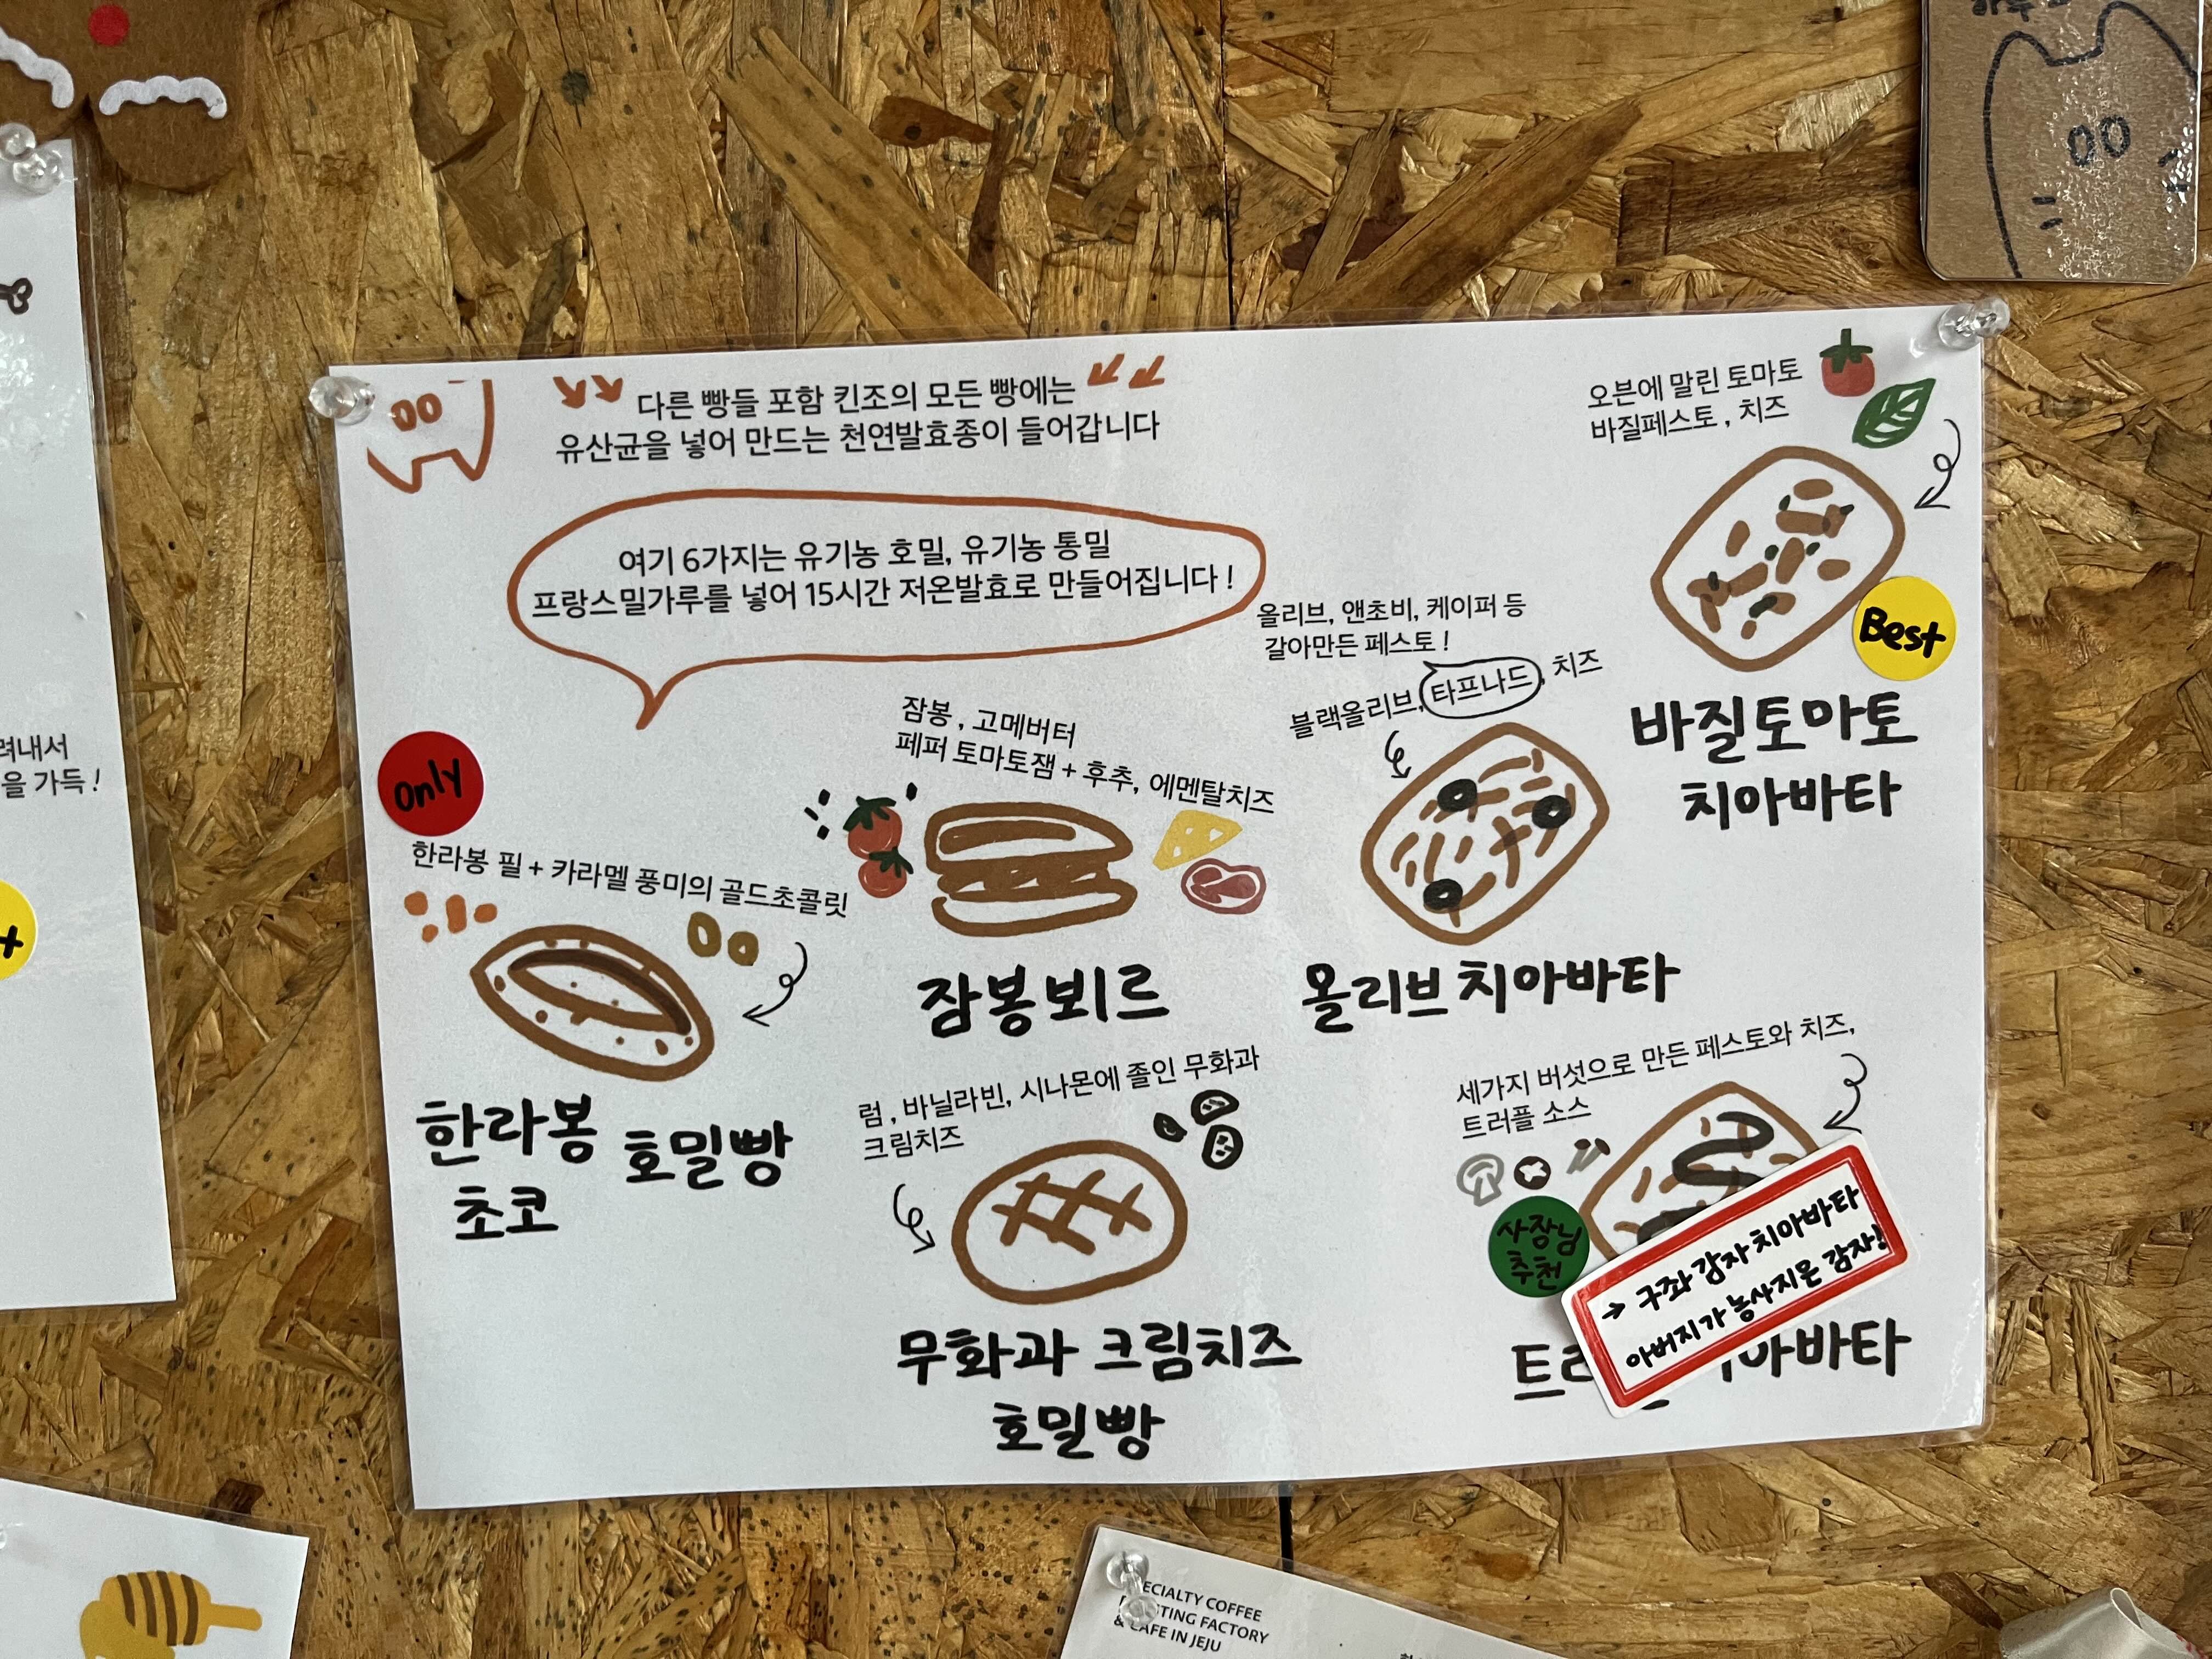 다른 빵들 포함 킨조의 모든 빵에는
유산균을 넣어 만드는 천연발효종이 들어갑니다
여기 6가지는 유기농 호밀, 유기농 통밀
프랑스밀가루를 넣어 15시간 저온발효로 만들어집니다!
오븐에 말린 토마토
바질페스토, 치즈
Best
바질토마토
치아바타
올리브, 앤초비, 케이퍼 등
갈아만든 페스토!
블랙올리브, 타프나드, 치즈
올리브 치아바타
잠봉, 고메버터
페퍼 토마토잼 + 후추, 에멘탈치즈
잠봉뵈르
only
한라봉 필 + 카라멜 풍미의 골드초콜릿
한라봉 호밀빵
초코
럼, 바닐라빈, 시나몬에 졸인 무화과
크림치즈
무화과 크림치즈
호밀빵
세가지 버섯으로 만든 페스토와 치즈,
트러플 소스
사장님
추천
→ 구좌 감자 치아바타
아버지가 농사지은 감자!
아바타
려내서
을 가득!
ECIALTY COFFEE
TING FACTORY
& CAFE IN JEJU